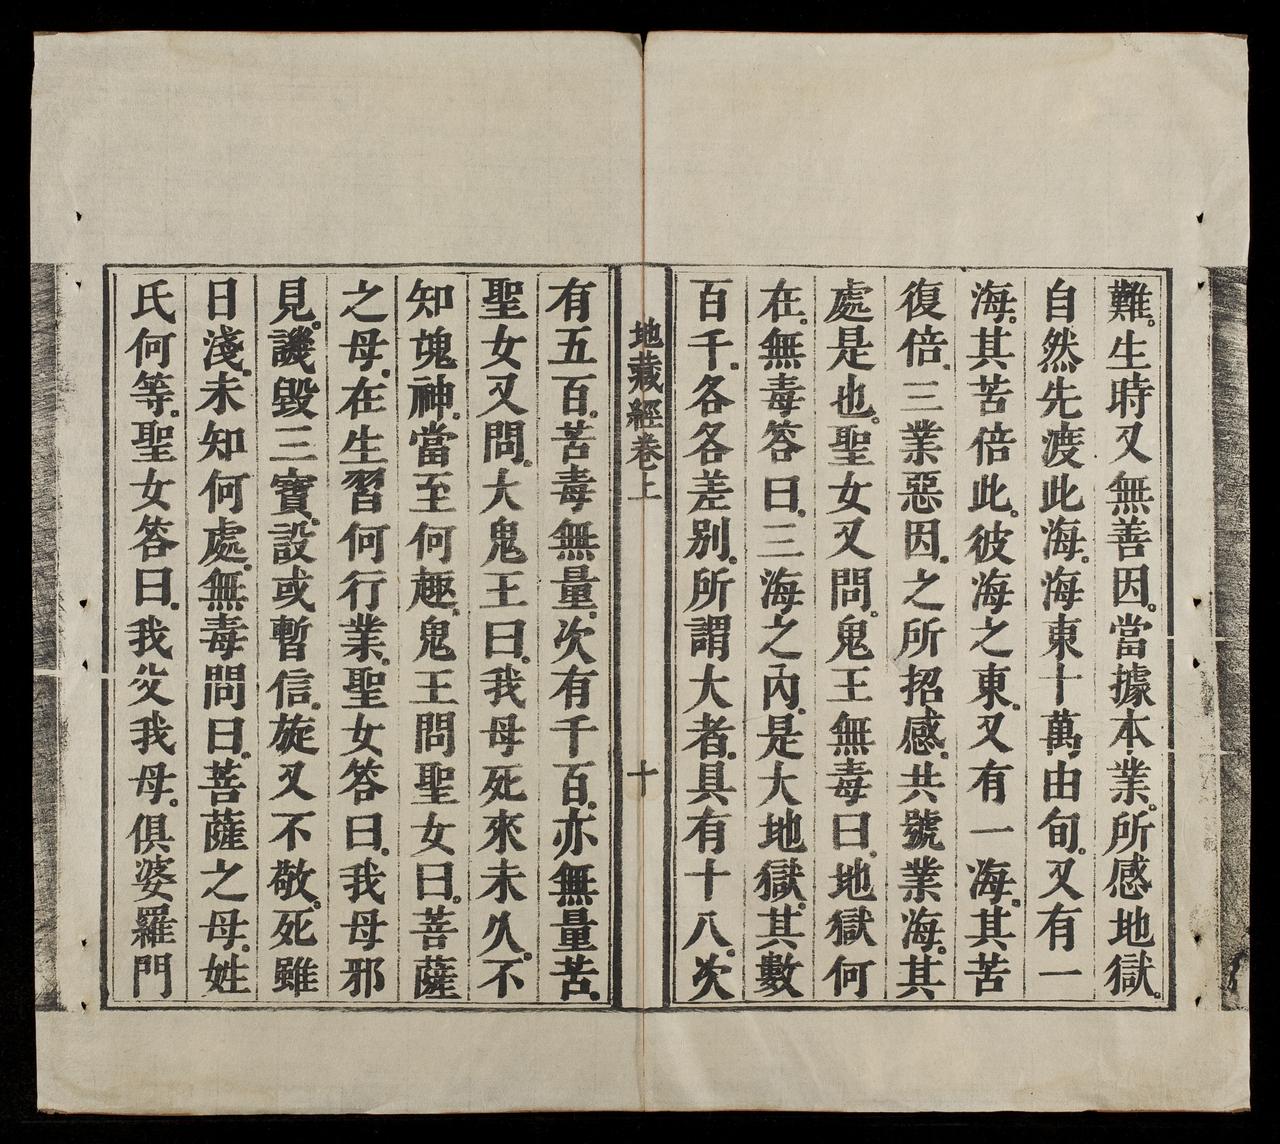 難。生時又無善因。當據本業。所感地獄。
自然先渡此海。海東十萬由旬。又有一
海。其苦倍此。彼海之東。又有一海。其苦
復倍。三業惡因。之所招感。共號業海。其
處是也。聖女又問。鬼王無毒曰。地獄何
在。無毒答曰。三海之內。是大地獄。其數
百千。各各差别。所謂大者。具有十八。次
地藏經卷上
十
有五百。苦毒無量。次有千百。亦無量苦。
聖女又問。大鬼王曰。我母死來未久。不
知魂神。當至何趣。鬼王問聖女曰。菩薩
之母。在生習何行業。聖女答曰。我母邪
見。譏毀三寶。設或暫信。旋又不敬。死雖
日淺。未知何處。無毒問曰。菩薩之母。姓
氏何等。聖女答曰。我父我母。俱婆羅門